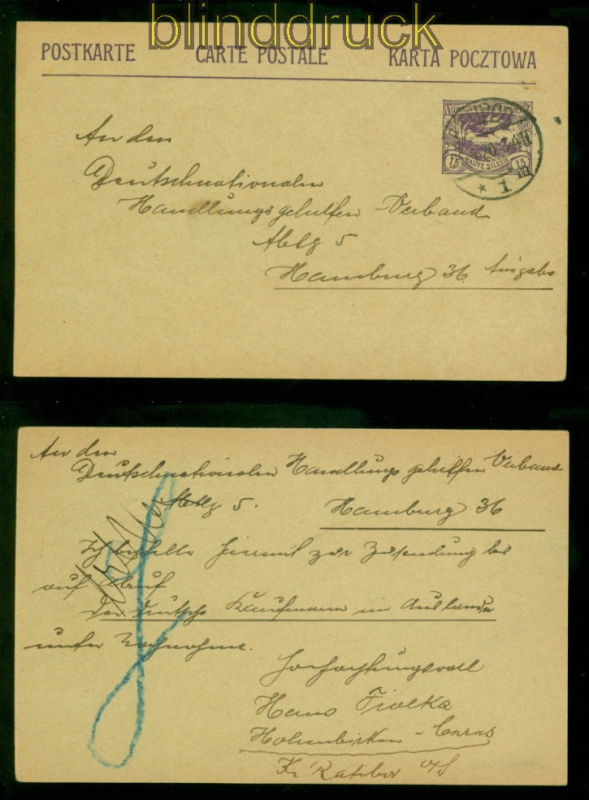 blinddruck
POSTKARTE CARTE POSTALE KARTA POCZTOWA
An den
Deutschnationalen
Handlungsgehilfen Verband
Abtlg 5
Hamburg 36
15 15
* 1
An den
Deutschnationalen Handlungsgehilfen Verband
Abtlg 5. Hamburg 36
Ich bestelle hiermit zur Zusendung bis
auf
Der Deutsche Kaufmann im Auslande
unter Nachnahme.
Hochachtungsvoll
Hans Fiolka
Kr. Ratibor O/S